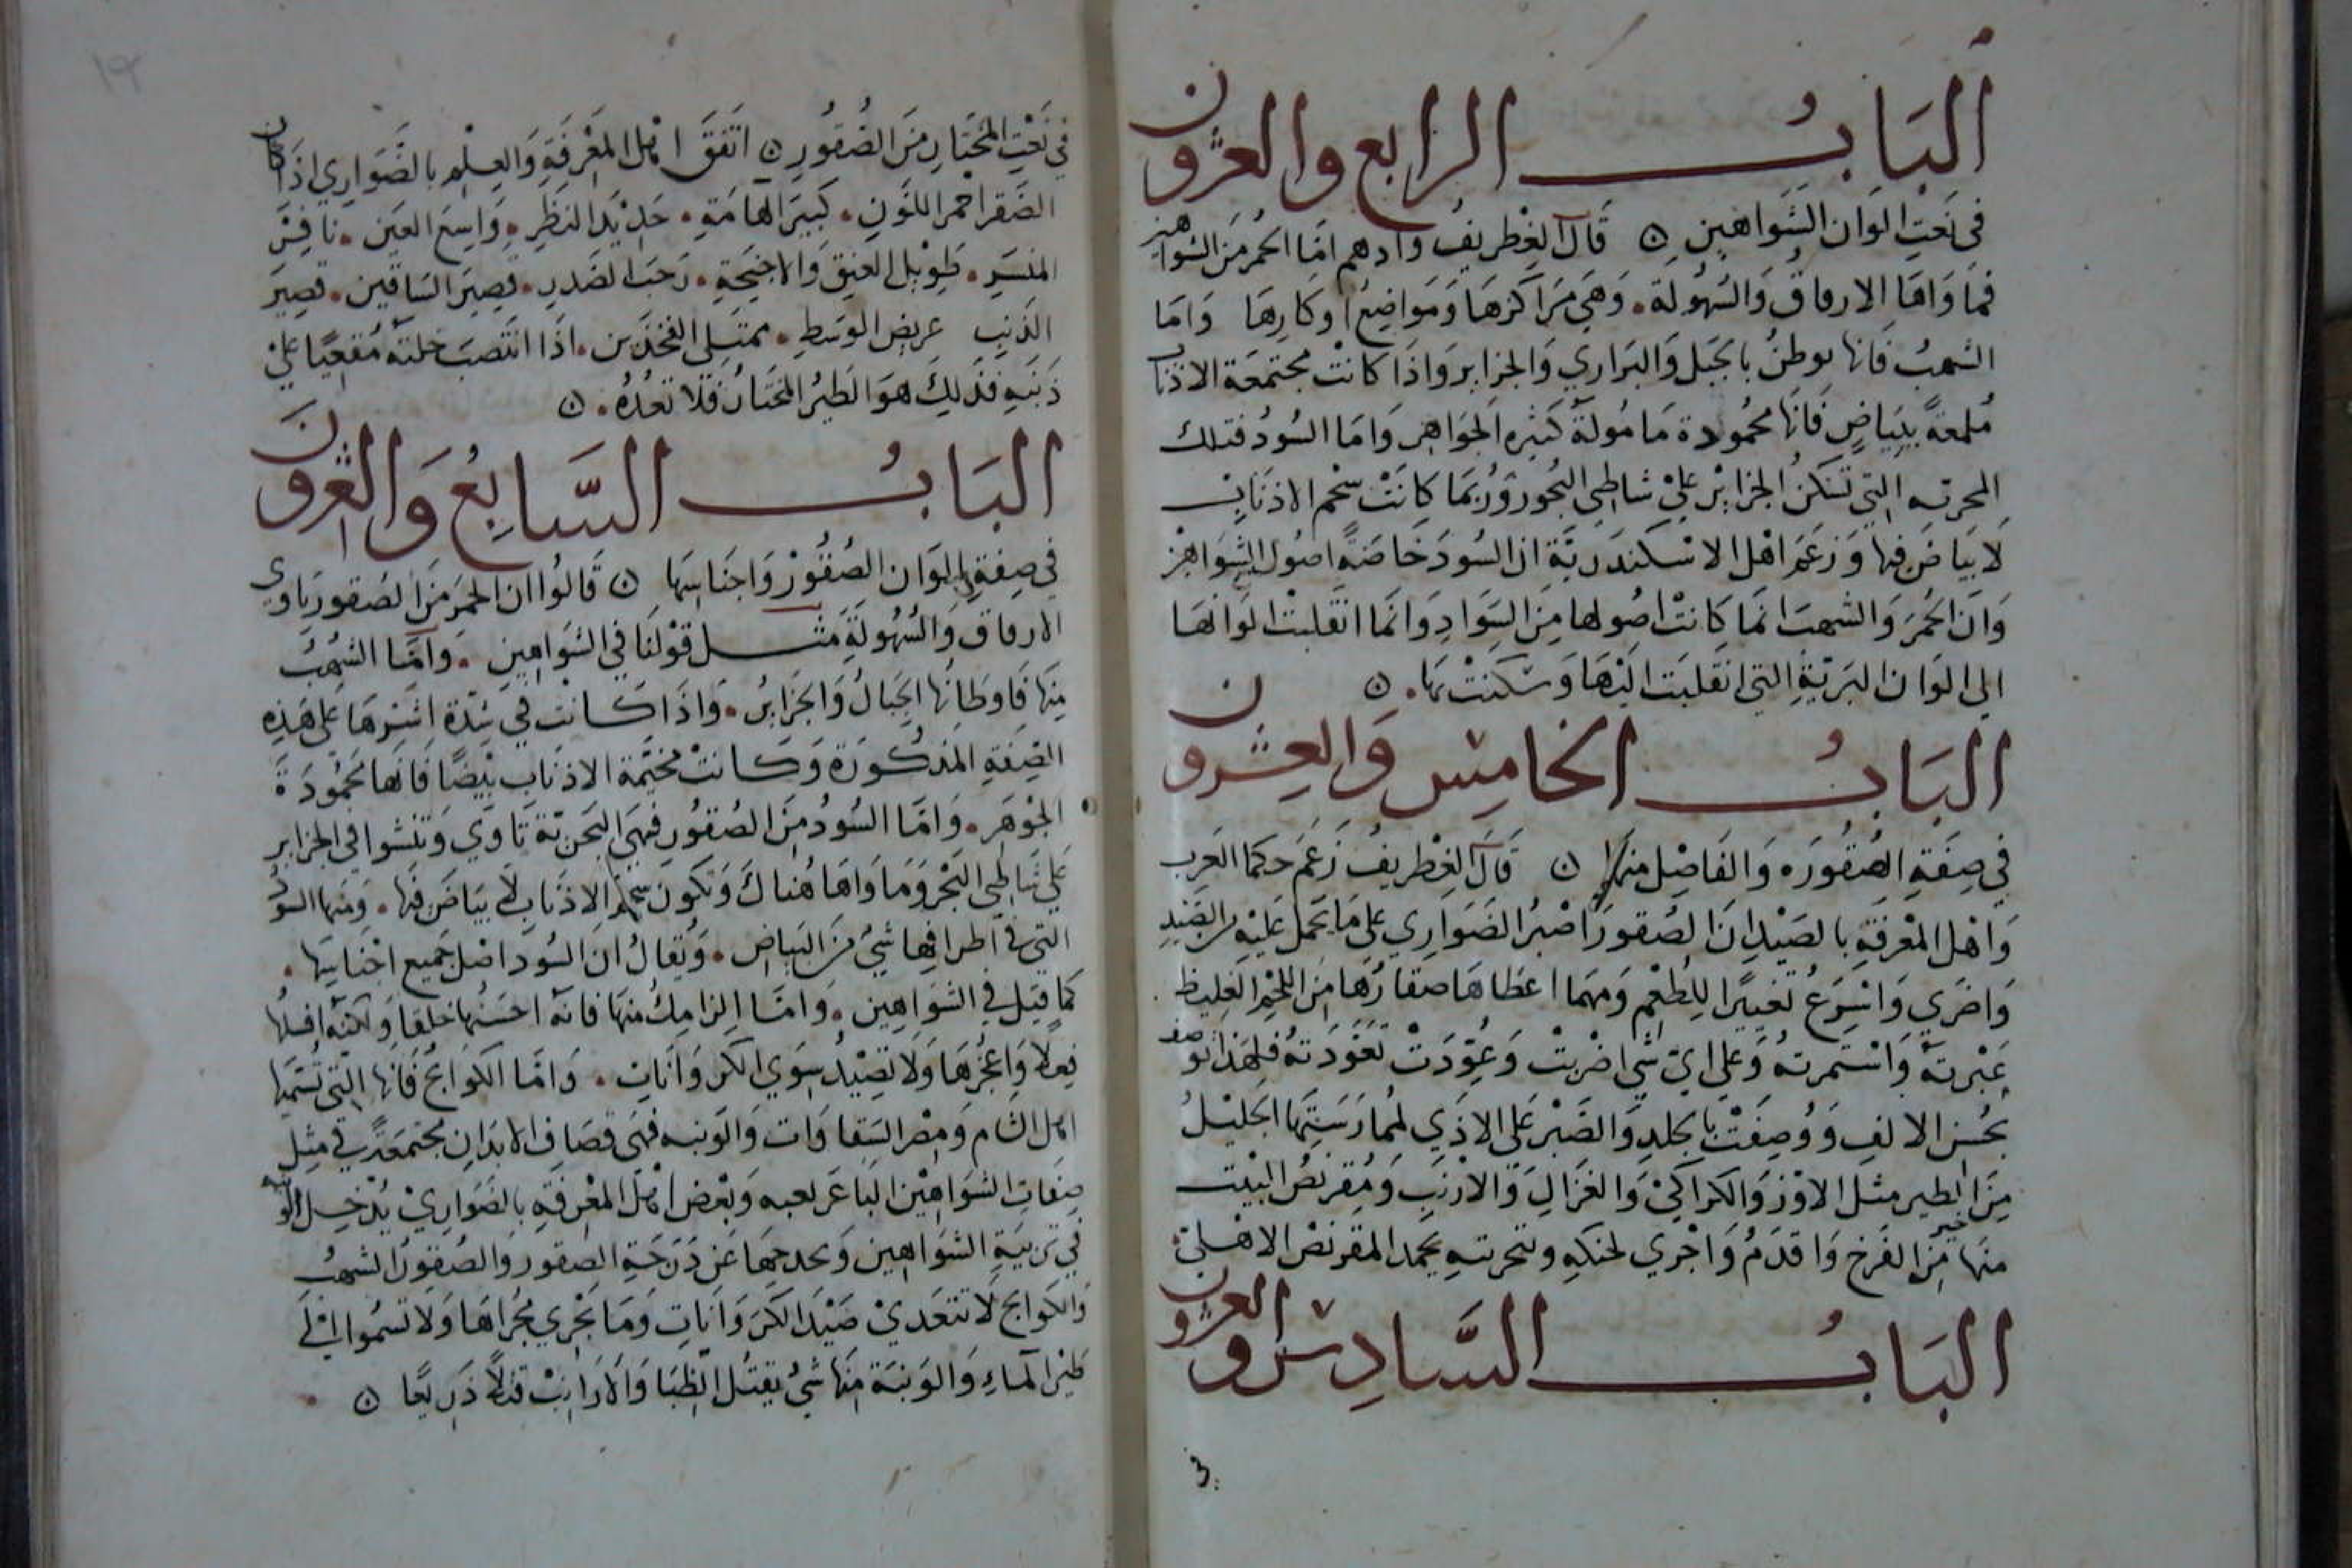 الباب الرابع والعشرون
في نعت الوان الشواهين ن قال الغطريف وادهم اما الحمر من الشواهين
فماواها الارفاق والسهولة. وهي مراكزها ومواضع اوكارها واما
الشهب فانها توطن بالجبل والبراري والجزاير واذا كانت مجتمعة الاذناب
ملمعة ببياض فانها محمودة مامولة كثيرة الجواهر واما السود فتلك
البحرية التي تسكن الجزاير علي شاطي البحور وربما كانت سحم الاذناب
لا بياض فيها وزعم اهل الاسكندرية ان السود خاصة اصول الشواهين
وان الحمر والشهب انما كانت اصولها من السواد وانما انقلبت الوانها
الي الوان البرية التي انقلبت اليها وسكنت بها. ن
الباب الخامس والعشرون
في صفة الصقورة والفاضل منها ن قال الغطريف زعم حكما العرب
واهل المعرفة بالصيد ان الصقور اصبر الضواري علي ما تحمل عليه من الصيد
واضري واسرع تغييرا للطعم ومهما اعطاها صقارها من اللحم الغليظ
عبرته واستمرته وعلي اي شي اضريت وعودت تعودته فلهذا توصف
بحسن الالف ووصفت بالجلد والصبر علي الاذي لممارستها الجليل
من الطير مثل الاوز والكراكي والغزال والارنب ومقرنص البيت
منها خير من الفرخ واقدم واجري لحنكه وتجربته يحمد المقرنص الاهلي
الباب السادس والعشرون
في نعت المختار من الصقور ن اتفق اهل المعرفة والعلم بالضواري اذا كان
الصقر احمر اللون. كبير الهامة. حديد النظر. واسع العين. نافس
المنسر. طويل العنق والاجنحة. رحب الصدر. قصير الساقين. قصير
الذنب عريض الوسط. ممتلي الفخذين. اذا انتصب خلته مقعيا علي
ذنبه فذلك هو الطير المختار فلا تعده. ن
الباب السابع والعشرون
في صفة الوان الصقور واجناسها ن قالوا ان الحمر من الصقور تاوي
الارفاق والسهولة مثل قولنا في الشواهين. واما الشهب
منها فاوطانها الجبال والجزاير. واذا كانت في شدة اسرها علي هذه
الصفة المذكورة وكانت مختمة الاذناب بيضا فانها محمودة
الجوهر. واما السود من الصقور فهي البحرية تاوي وتنشوا في الجزاير
علي شاطي البحر وماواها هناك وتكون سحم الاذناب لا بياض فيها. ومنها السود
التي في اطرافها شي من البياض. ويقال ان السود اصل جميع اجناسها.
كما قيل في الشواهين. واما الزامك منها فانه احسنها خلقا ولكنه افسلها
فعلا واعجزها ولا تصيد سوي الكروانات. واما الكوابج فانها التي تسميها
اهل الشام ومصر السقاوات والونبه فهي قصاف الابدان مجتمعة في مثل
صفات الشواهين وبعض اهل المعرفة بالضواري يدخل الونبه
في تربية الشواهين ويخرجها عن درجة الصقور والصقور الشهب
والكوابج لا تتعدي صيد الكروانات وما يجري مجراها ولا تسموا الي
طير الماء والونبة منها شي يقتل الظبا والارانب قتلا ذريعا ن